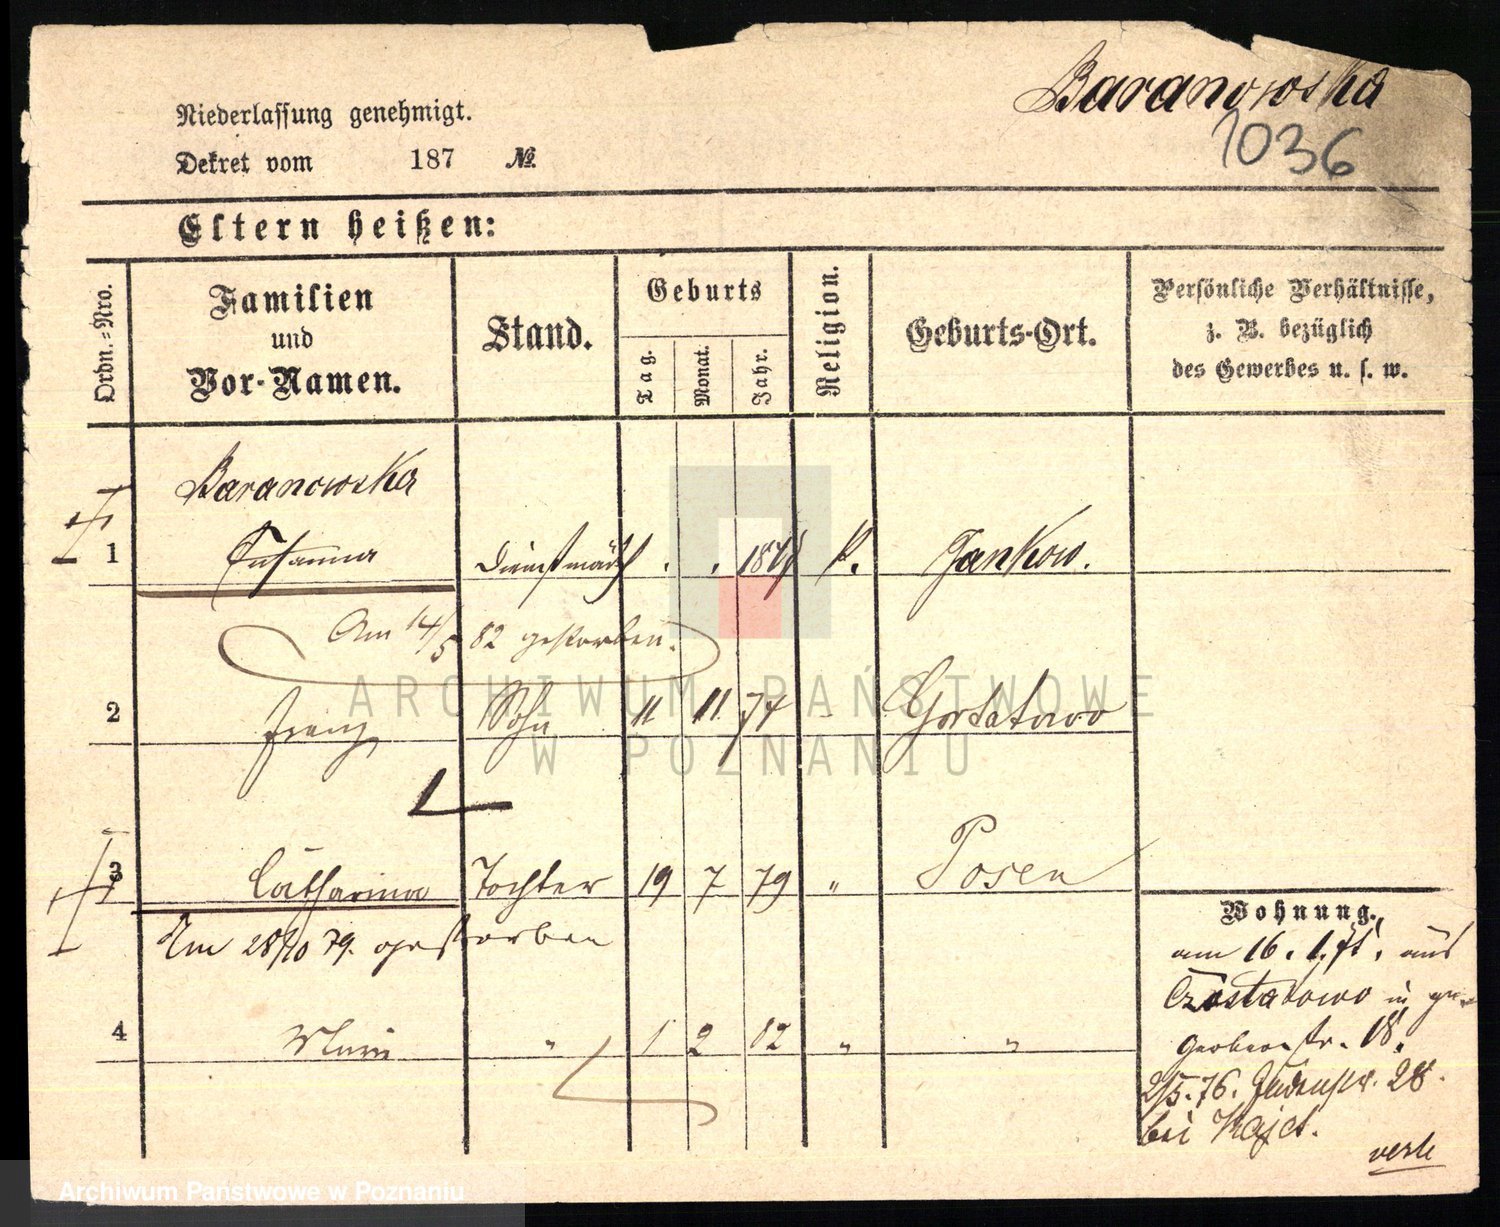 Baranowska
1036
Niederlassung genehmigt.
Dekret vom 187 №.
Eltern heißen:
Ordn.=Nro.
Familien
und
Vor-Namen.
Stand.
Geburts
Tag.
Monat.
Jahr.
Religion.
Geburts-Ort.
Persönliche Verhältnisse,
z. B. bezüglich
des Gewerbes u. s. w.
Baranowska
1 Susanna Dienstmädch . . K. Jankow.
Am 14/5 82 gestorben.
2 Franz Sohn 11 11. 74
3 Catharina Tochter 19 7 79 " Posen
Am 28/10 79. gestorben
4 " 1 2 82 " "
Wohnung.
am 16. 1. 75. aus
in
Gerberstr. 18.
2/5. 76. Judenstr. 28.
bei
ARCHIWUM PAŃSTWOWE
W POZNANIU
Archiwum Państwowe w Poznaniu